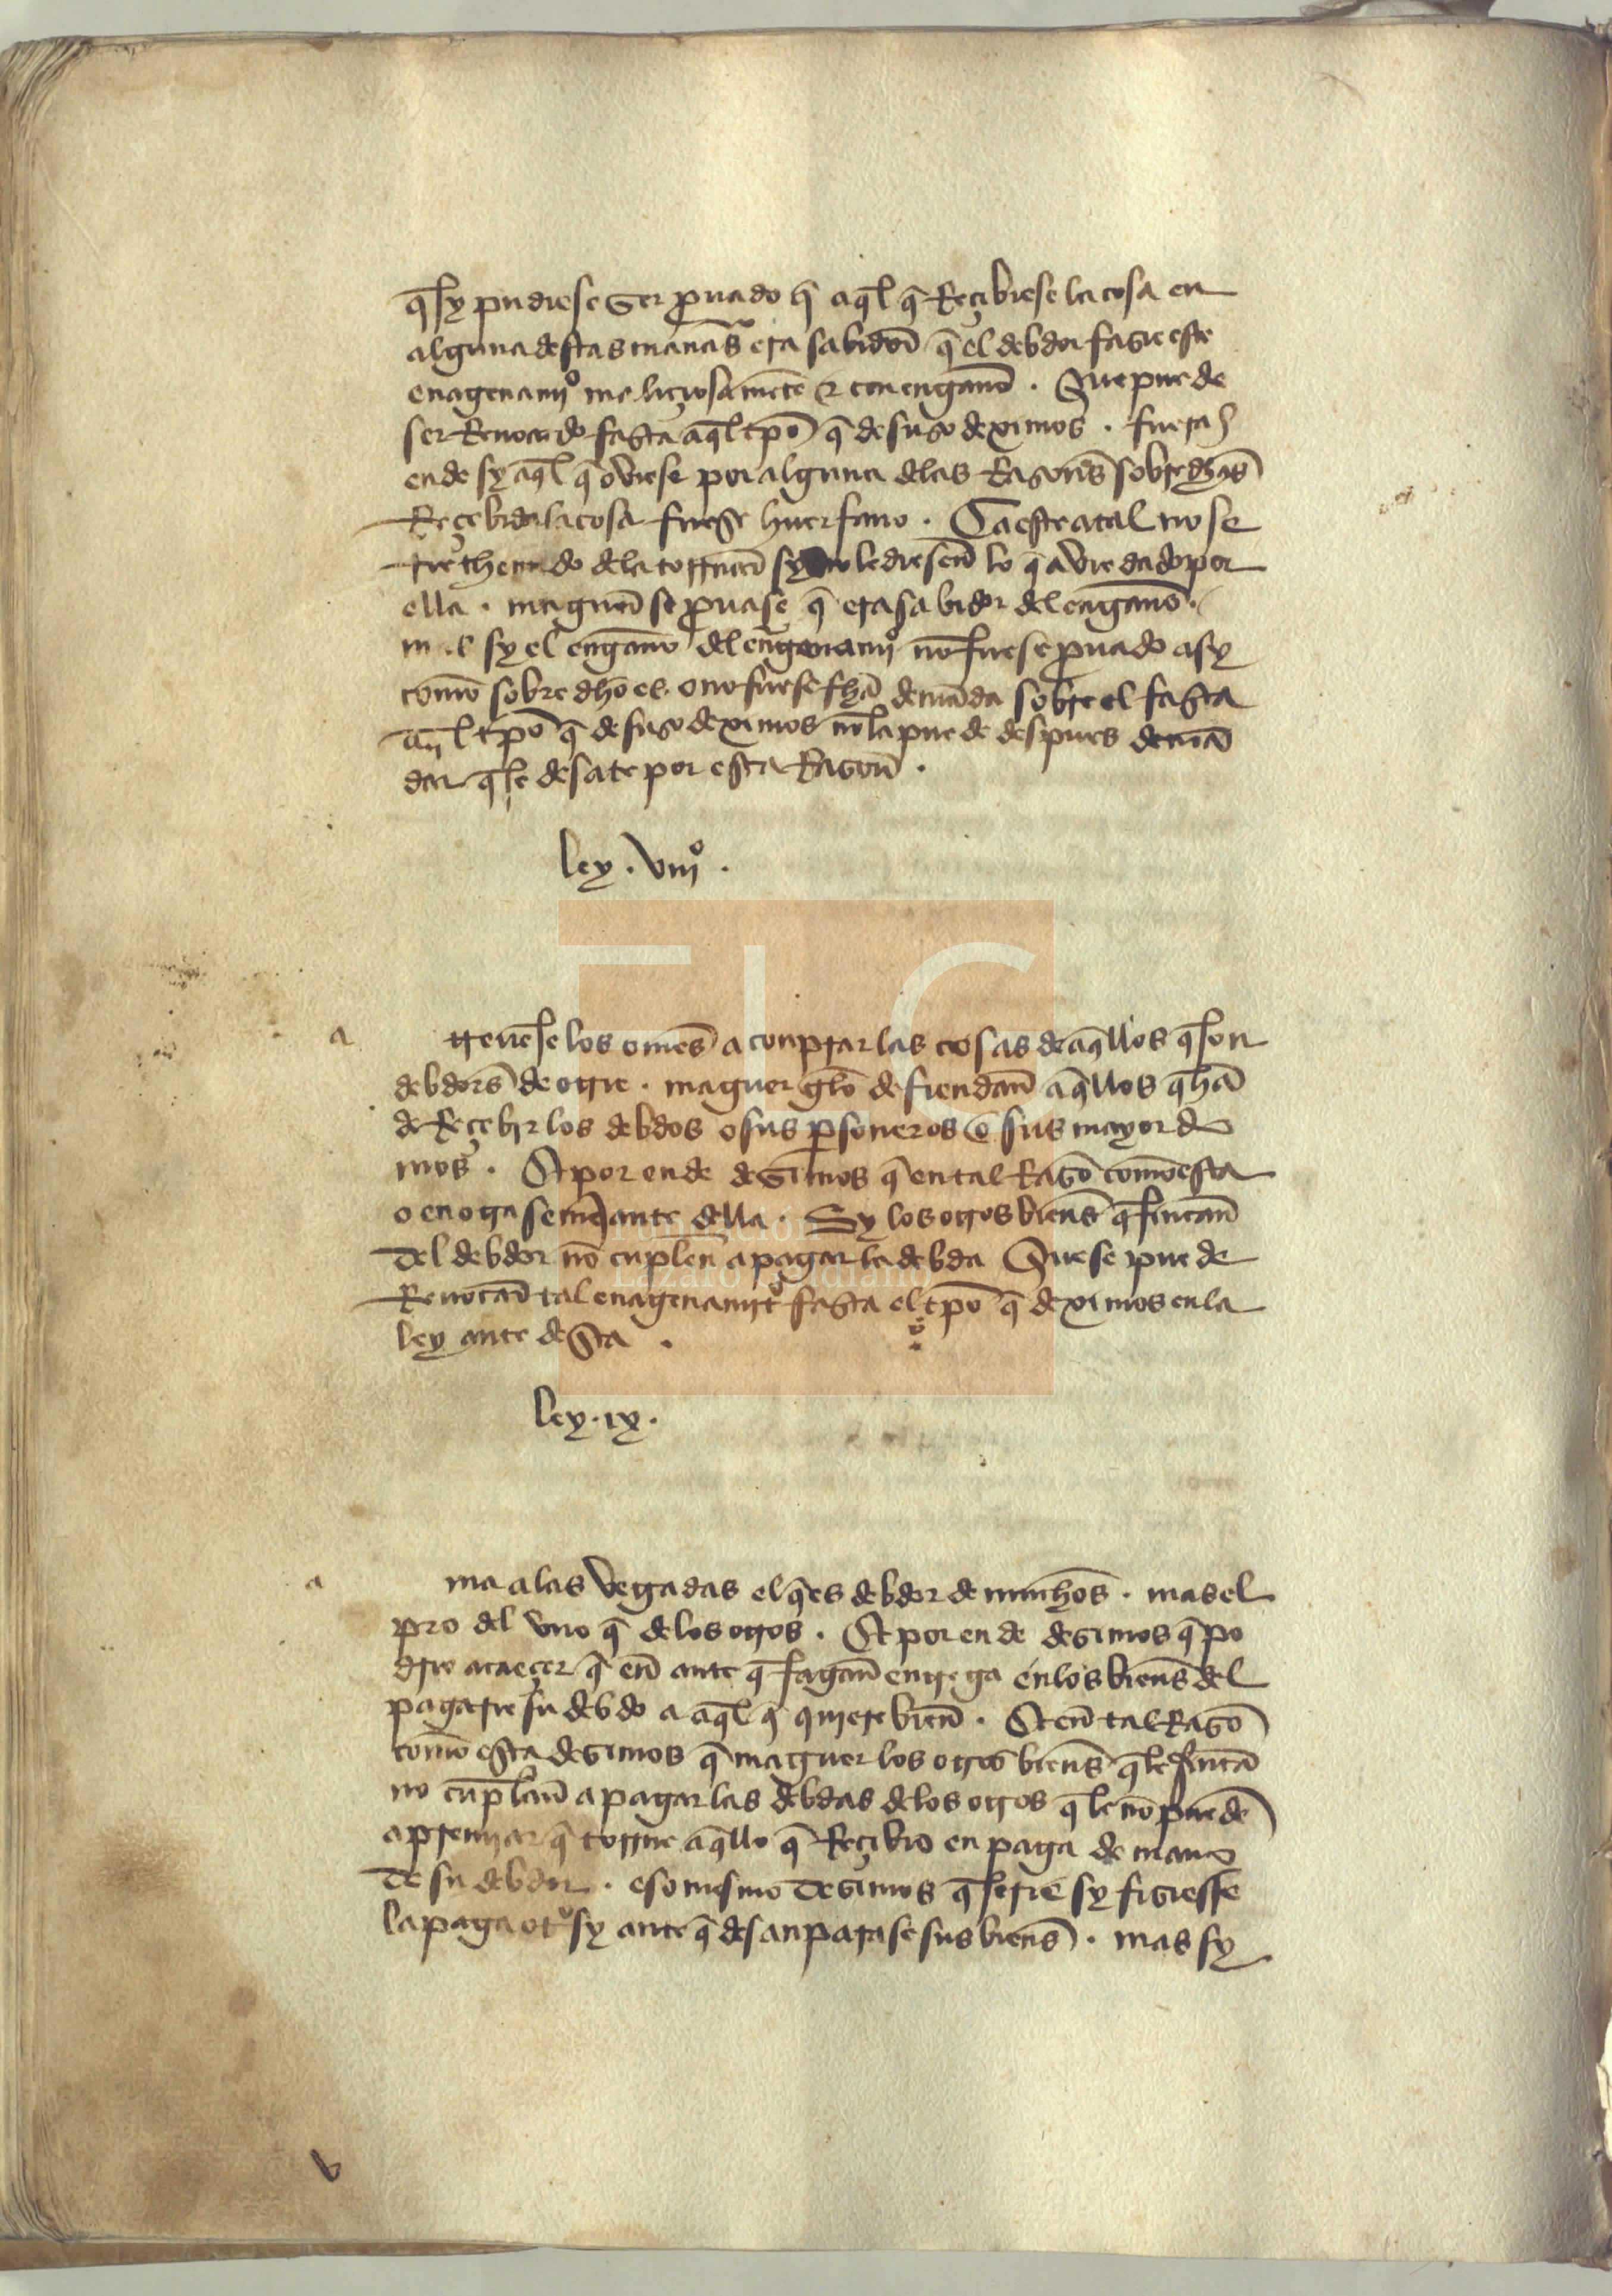 q̃ sy pudiese ser prouado q̃ aq̃l q̃ Reçibiese la cosa en
alguna destas man̄as era sabidor q̃ el debdor fasie este
enagenamjº maliçiosamẽte & con engaño . Que puede
ser Reuocado fasta aq̃l tp̃o q̃ de suso deximos . fuera
ende sy aq̃l q̃ oviese por alguna delas Rasones sobredhãs
Reçebida la cosa fuese huerfano . Ca este atal no se
rie thenudo dela tornar sy no le diesen lo q̃ avie dado por
ella . maguer se prouase q̃ era sabidor del engaño .
mas sy el engaño del engenamjº nõ fuese prouado asy
como sobredhõ es . o no fuese fhã demãda sobre el fasta
aq̃l tp̃o q̃ de suso deximos nõ la puede despues demã
dar q̃ se desate por esta Rason .
ley . viijº .
a
treuẽse los omes a conprar las cosas de aq̃llos q̃ son
debdores de otrie . maguer gelo defiendan aq̃llos q̃ hã
de Reçebir los debdos o sus psoneros o sus mayordo
mos . Et por ende desimos q̃ en tal Rasõ como esta
o en otra semejante della . Sy los otros bienes q̃ fincan
del debdor nõ cunplen a pagar la debda Que se puede
Reuocar tal enagenamjtº fasta el tp̃o q̃ deximos en la
ley ante desta .
ley . ix .
a
ma a las vegadas el q̃ es debdor de muchos . mas el
pro del vno q̃ de los otros . Et por ende desimos q̃ po
drie acaeçer q̃ en ante q̃ fagan entrega en los bienes del
pagarie su debdo a aq̃l q̃ quiere bien . Et en tal Rasõ
como esta desimos q̃ maguer los otros bienes q̃ le fincã
no cunplan a pagar las debdas delos otros q̃ le nõ pueden
apremjar q̃ torne aq̃llo q̃ Reçibio en paga de mano
de su debdor . eso mesmo desimos q̃ serie sy fisiesse
la paga otºsy ante q̃ desanparase sus bienes . mas sy